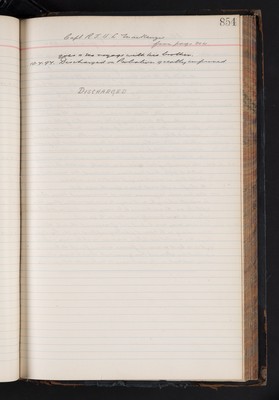 854
Capt R.
from page
goes a sea voyage with his brother.
Discharged on Probation greatly improved
DISCHARGED